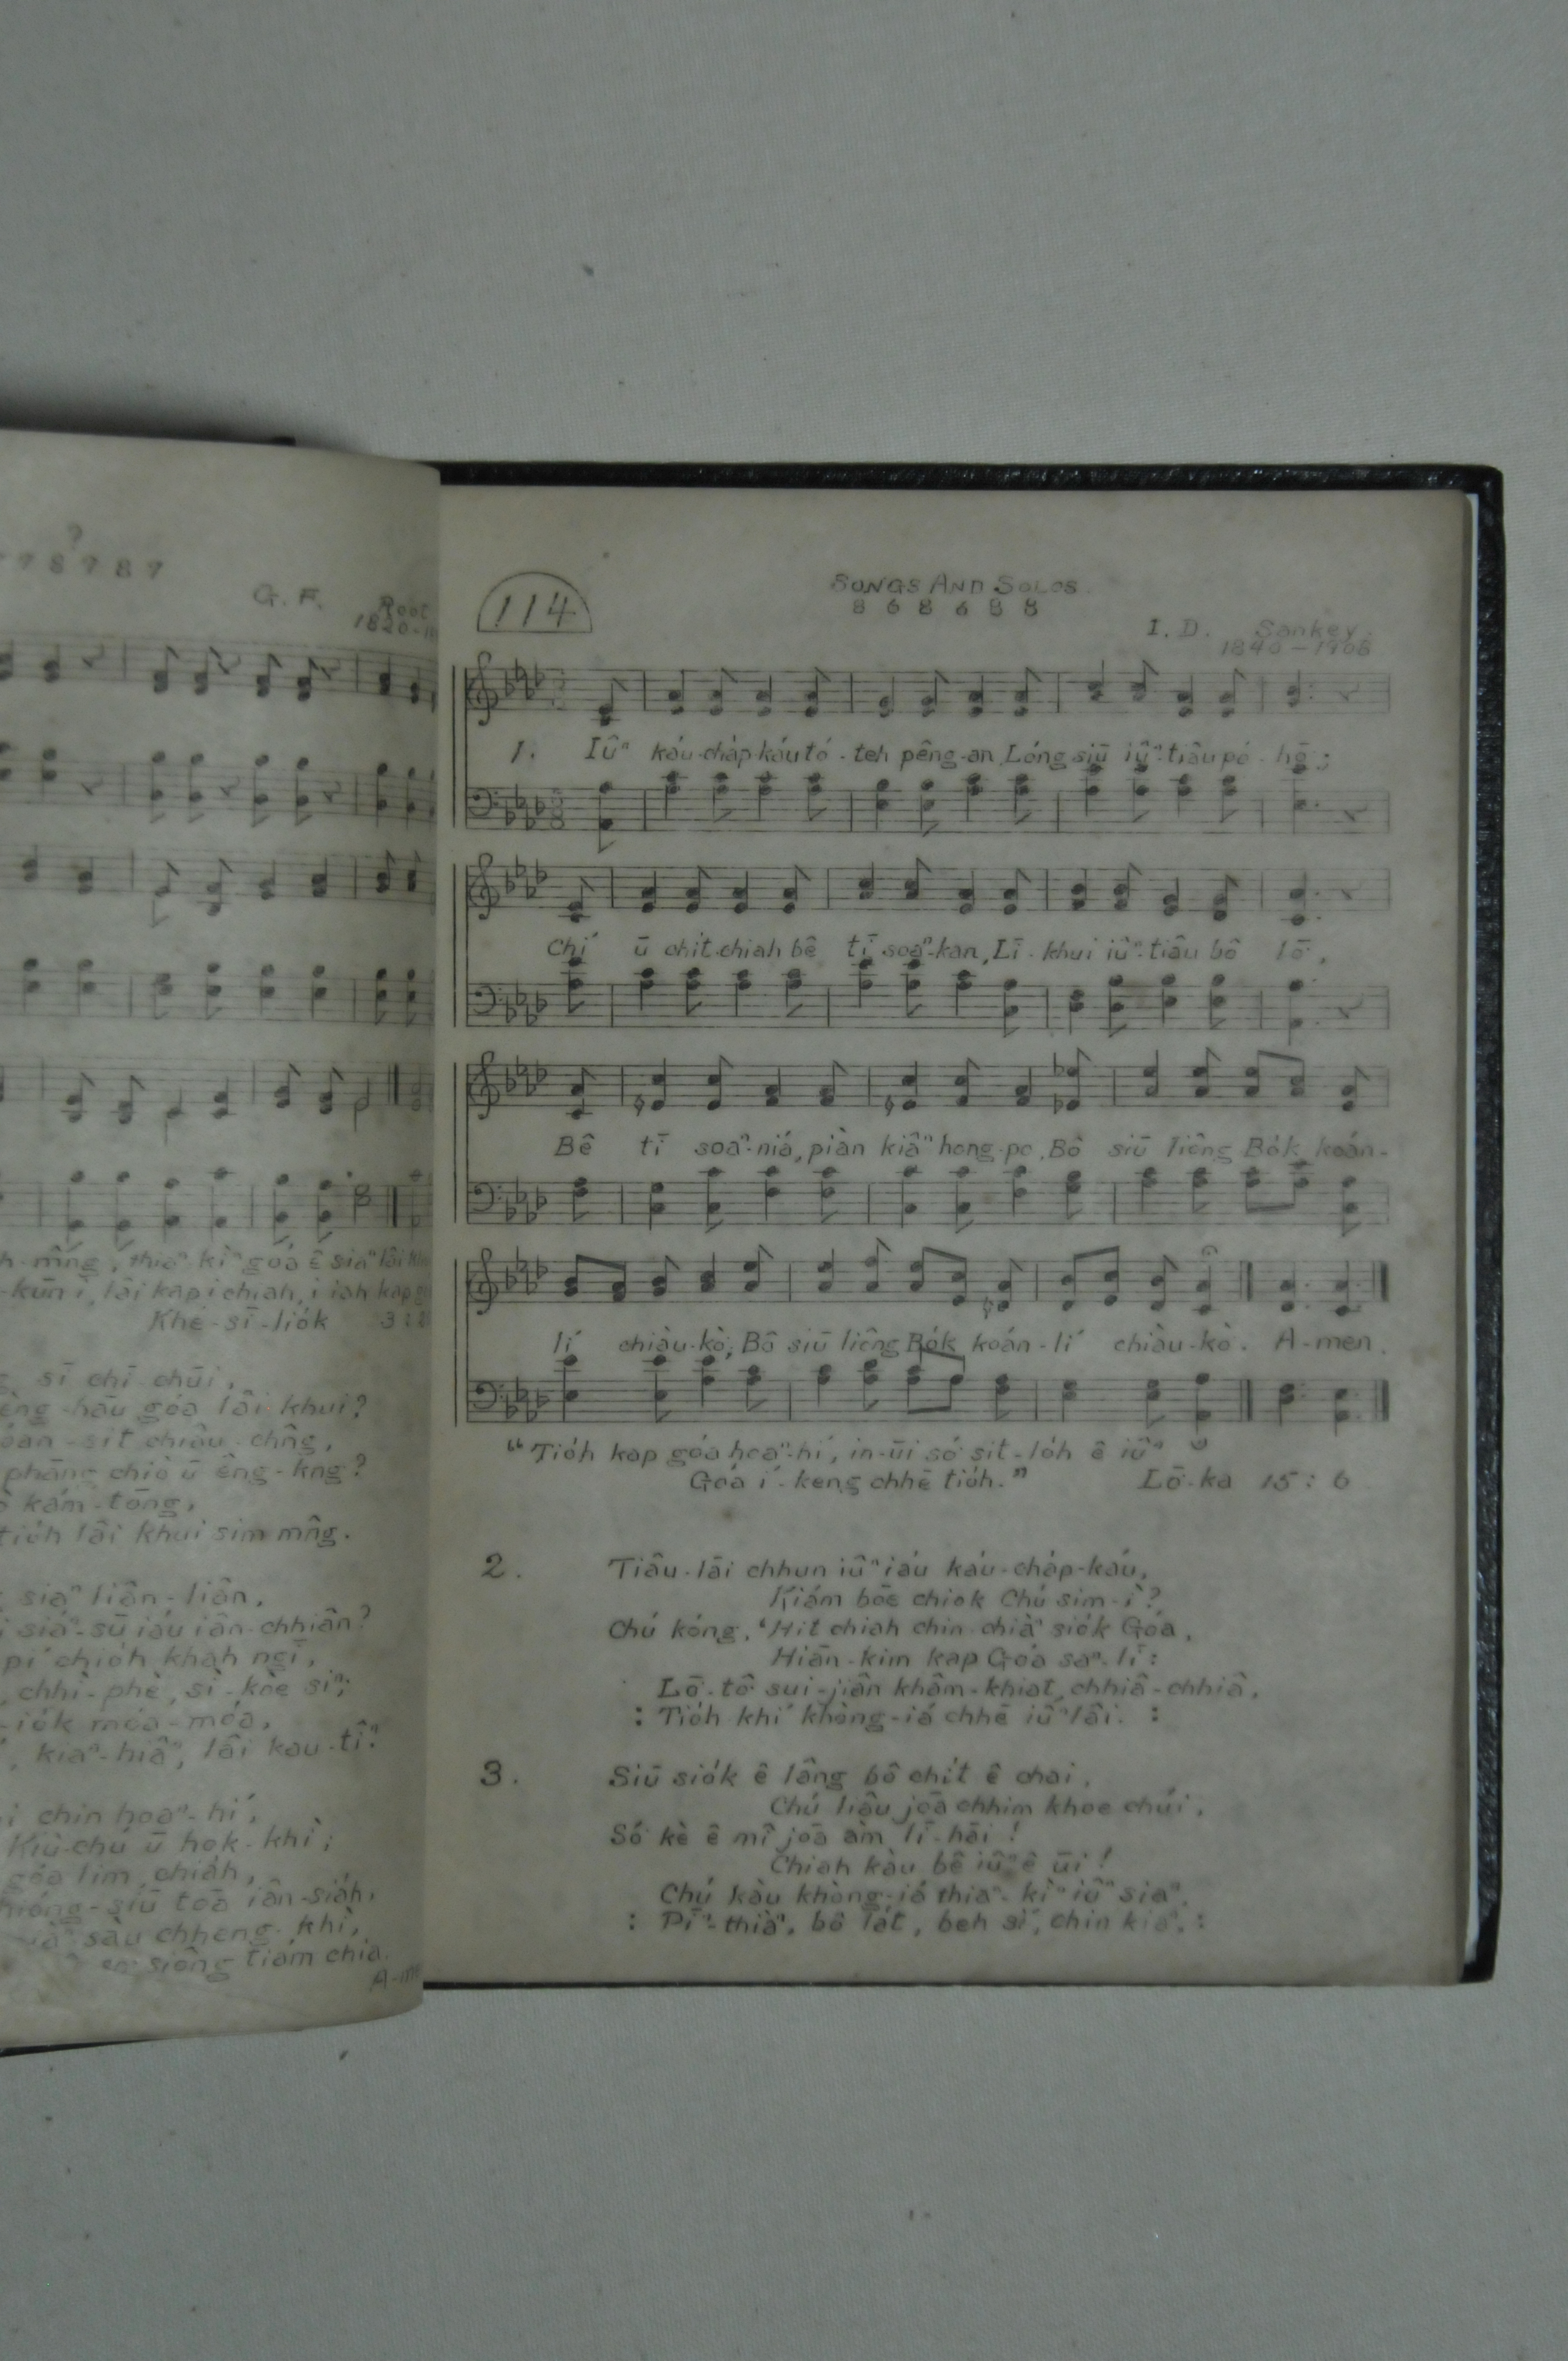 7 8 7 8 7
?
G. F. Root
1820-
h-mn̂g, thiaⁿ-kìⁿ góa ê siaⁿ lâi
-kūn i, lâi kap i chiah, i iah kap
Khé-sī-lio̍k 3:2
sī chī-chūi,
èng-hāu góa lâi khui?
oān-sit chiâu-chn̂g,
phāng chiò ū êng-kng?
kám-tōng,
tio̍h lâi khui sim-mn̂g.
siaⁿ liân-liân,
siáⁿ-sū iáu iân-chhiân?
pí chio̍h khah ngī,
chhì-phè, sì-kòe siⁿ;
-io̍k móa-móa,
kiaⁿ-hiâⁿ, lâi kau-tîⁿ.
chin hoaⁿ-hí,
Kiù-chú ū hok-khì;
góa lim, chia̍h,
hióng-siū toā iân-siàh,
sàu chheng-khì,
siông tiàm chia.
A-
114
SONGS AND SOLOS
8 6 8 6 8 8
I. D. Sankey.
1840-1908
1. Iûⁿ káu-cha̍p-káu tó-teh pêng-an, Lóng siū iûⁿ-tiâu pó-hō·;
Chí ū chi̍t-chiah bê tī soaⁿ-kan, Lī-khui iûⁿ-tiâu bô lō·,
Bê tī soaⁿ-niá, piàn kiâⁿ hong-po, Bô siū liông Bo̍k koán-
lí chiàu-kò·, Bô siū liông Bo̍k koán-lí chiàu-kò·. A-men.
"Tio̍h kap góa hoaⁿ-hí, in-ūi só· sit-lo̍h ê iûⁿ
Góa í-keng chhē tio̍h." Lō·-ka 15:6
2. Tiâu-lāi chhun iûⁿ iáu káu-cha̍p-káu,
Kiám bōe chiok Chú sim-ì?
Chú kóng, 'Hit chiah chin-chiàⁿ sio̍k Góa,
Hiān-kim kap Góa saⁿ-lī:
Lō·-tô· sui-jiân khâm-khiat, chhiâ-chhiâ,
: Tio̍h khí khòng-iá chhē iûⁿ lâi. :
3. Siū sio̍k ê lâng bô chi̍t ê chai,
Chú liâu joā chhim khoe chúi,
Só· kè ê mî joā àm lī-hāi!
Chiah kàu bê iûⁿ ê ūi!
Chú kàu khòng-iá thiaⁿ-kìⁿ iûⁿ siaⁿ.
: Pīⁿ-thiàⁿ, bô la̍t, beh sí, chin kiaⁿ. :